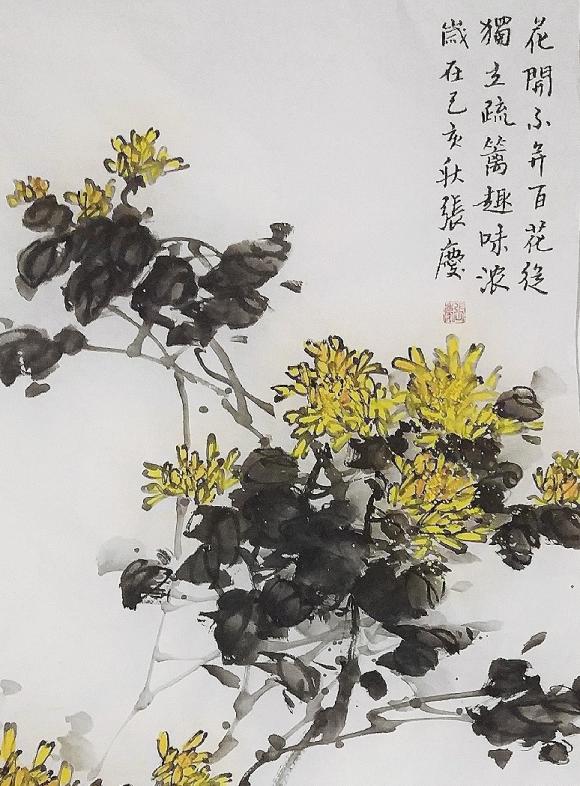 花開不并百花從
獨立疏篱趣味浓
歲在己亥秋張慶